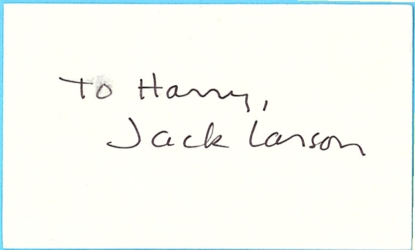 To Harry,
Jack Larson